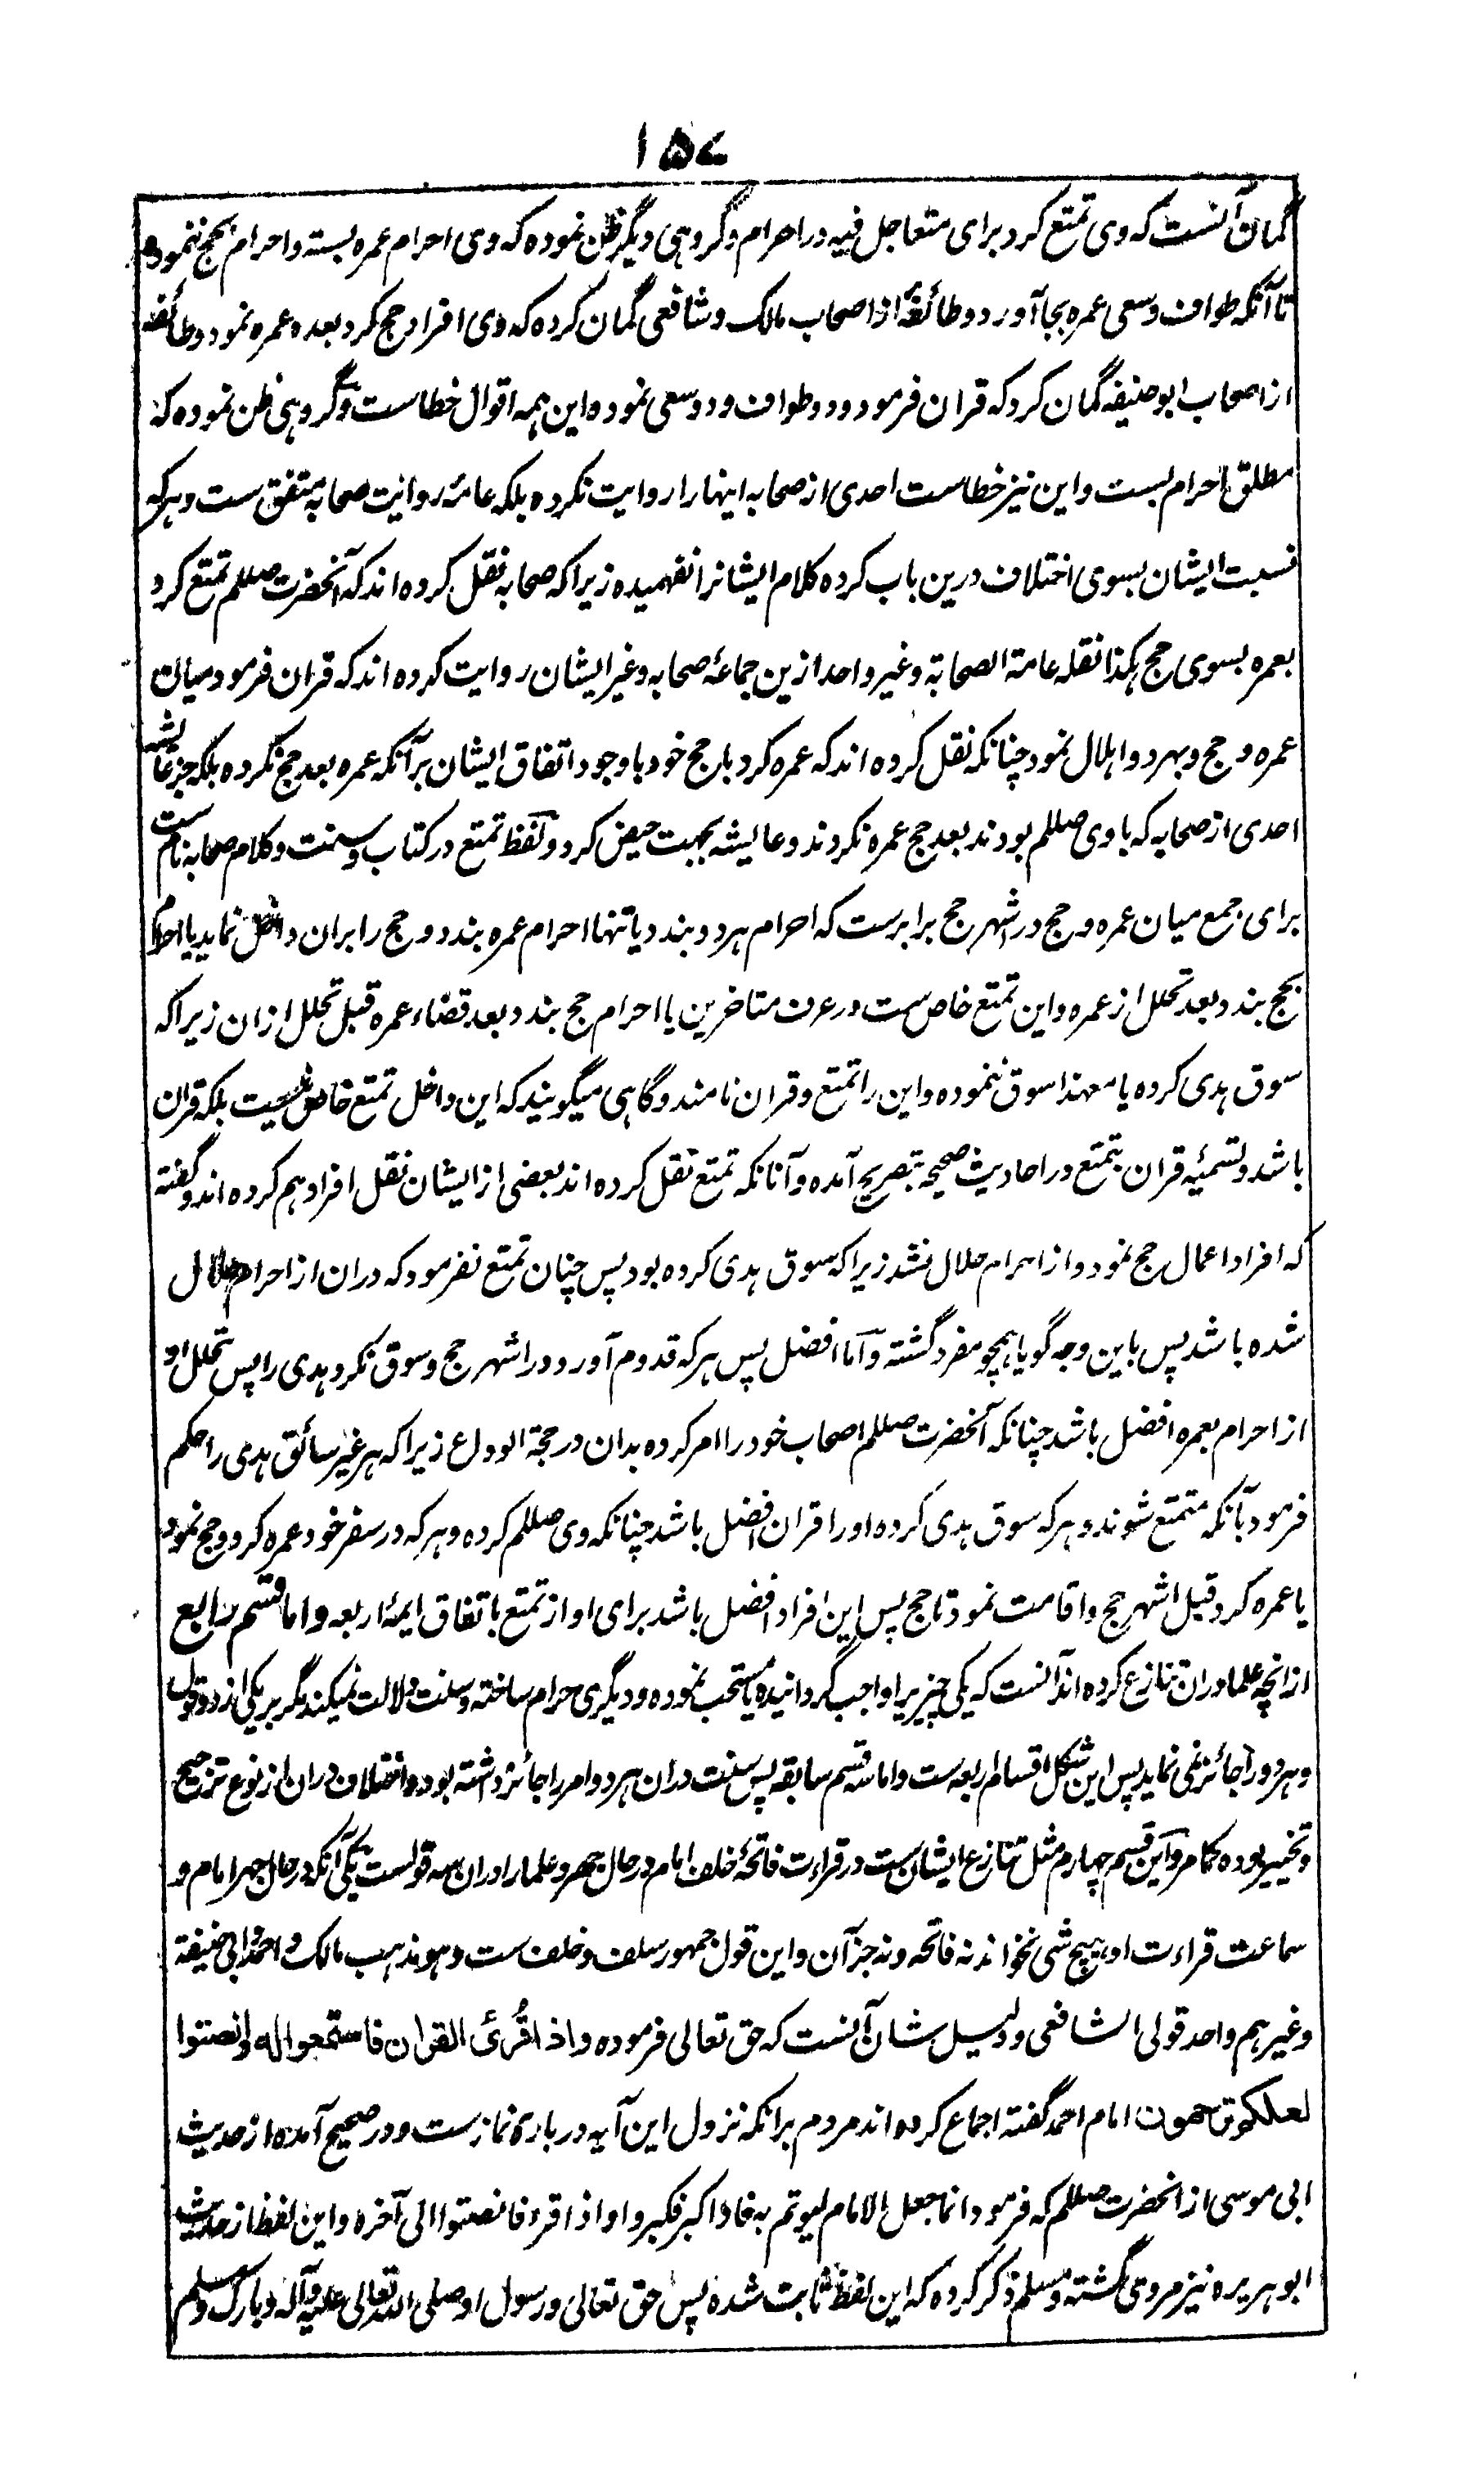 ۱۵۷
گمان آنست که وی تمتع کرد برای متعاجل فیه در احرام و گروهی دیگر ظن نموده که وی احرام عمره بسته و احرام بحج ننموده
تا آنکه طواف و سعی عمره بجا آورد و طائفهٔ از اصحاب مالک و شافعی گمان کرده که وی افراد حج کرد بعده عمره نمود و طائفه
از اصحاب ابو حنیفه گمان کرد که قران فرمود و دو طواف و دو سعی نموده این همه اقوال خطاست و گروهی ظن نموده که
مطلق احرام بست و این نیز خطاست احدی از صحابه اینها را روایت نکرده بلکه عامهٔ روایت صحابه متفق ست و هرکه
نسبت ایشان بسوی اختلاف درین باب کرده کلام ایشانرا نفهمیده زیرا که صحابه نقل کرده اند که آنحضرت صللم تمتع کرد
بعمره بسوی حج هکذا نقله عامة الصحابة و غیر واحد ازین جماعهٔ صحابه و غیر ایشان روایت کرده اند که قران فرمود میان
عمره و حج و بهر دو اهلال نمود چنانکه نقل کرده اند که عمره کرد با حج خود با وجود اتفاق ایشان بر آنکه عمره بعد حج نکرده بلکه جز عایشه
احدی از صحابه که با وی صللم بودند بعد حج عمره نکردند و عایشه بجهت حیض کرد و لفظ تمتع در کتاب و سنت و کلام صحابه نام ست
برای جمع میان عمره و حج در اشهر حج برابرست که احرام هر دو بندد یا تنها احرام عمره بندد و حج را بران داخل نماید یا احرام
بحج بندد بعد تحلل از عمره و این تمتع خاص ست در عرف متاخرین یا احرام حج بندد بعد قضاء عمره قبل تحلل ازان زیرا که
سوق هدی کرده یا معهذا سوق ننموده و این را تمتع و قران نامند و گاهی میگویند که این داخل تمتع خاص نیست بلکه قران
باشد و تسمیهٔ قران بتمتع در احادیث صحیحه بتصریح آمده و آنانکه تمتع نقل کرده اند بعضی از ایشان نقل افراد هم کرده اند و گفته
که افراد اعمال حج نمود و از احرام حلال نشد زیرا که سوق هدی کرده بود پس چنان تمتع نفرمود که دران از احرام حلال
شده باشد پس باین وجه گویا همچو مفرد گشته و اما افضل پس هرکه قدوم آورد در اشهر حج و سوق نکرد هدی را پس تحلل او
از احرام بعمره افضل باشد چنانکه آنحضرت صللم اصحاب خود را امر کرده بدان در حجة الوداع زیرا که هر غیر سائق هدی را حکم
فرمود بآنکه متمتع شوند و هرکه سوق هدی کرده او را قران افضل باشد چنانکه وی صللم کرده و هرکه در سفر خود عمره کرد و حج نمود
یا عمره کرد قبل اشهر حج و اقامت نمود تا حج پس این افراد افضل باشد برای او از تمتع باتفاق ایمهٔ اربعه و اما قسم رابع
از انچه علما دران تنازع کرده اند آنست که یکی چیزیرا واجب گردانیده یا مستحب نموده و دیگری حرام ساخته و سنت دلالت نمیکند مگر بر یکی از دو قول
و هر دو را جائز نمی نماید پس این شکل اقسام اربعه ست و اما سه قسم سابقه پس سنت دران هر دو امر را جائز داشته بود و اختلاف دران از نوع ترجیح
و تخییر بوده کما مر و این قسم چهارم مثل تنازع ایشان ست در قراءت فاتحهٔ خلف امام در حال جهر و علما را دران سه قولست یکی آنکه در حال جهر امام و
سماعت قراءت او هیچ شی نخواند نه فاتحه و نه جز آن و این قول جمهور سلف و خلف ست و هو مذهب مالک و احمد و ابی حنیفة
و غیرهم و احد قولی الشافعی و دلیل شان آنست که حق تعالی فرموده و اذا قُرِئَ القران فاستمعوا له و انصتوا
لعلکم ترحمون امام احمد گفته اجماع کرده اند مردم برانکه نزول این آیه در بارهٔ نماز ست و در صحیح آمده از حدیث
ابی موسی از آنحضرت صللم که فرمود انما جعل الامام لیوتم به فاذا کبر فکبروا و اذا قرء فانصتوا الی آخره و این لفظ از حدیث
ابو هریره نیز مروی گشته و مسلم ذکر کرده که این لفظ ثابت شده پس حق تعالی و رسول او صلی الله تعالی علیه و آله و بارک و سلم